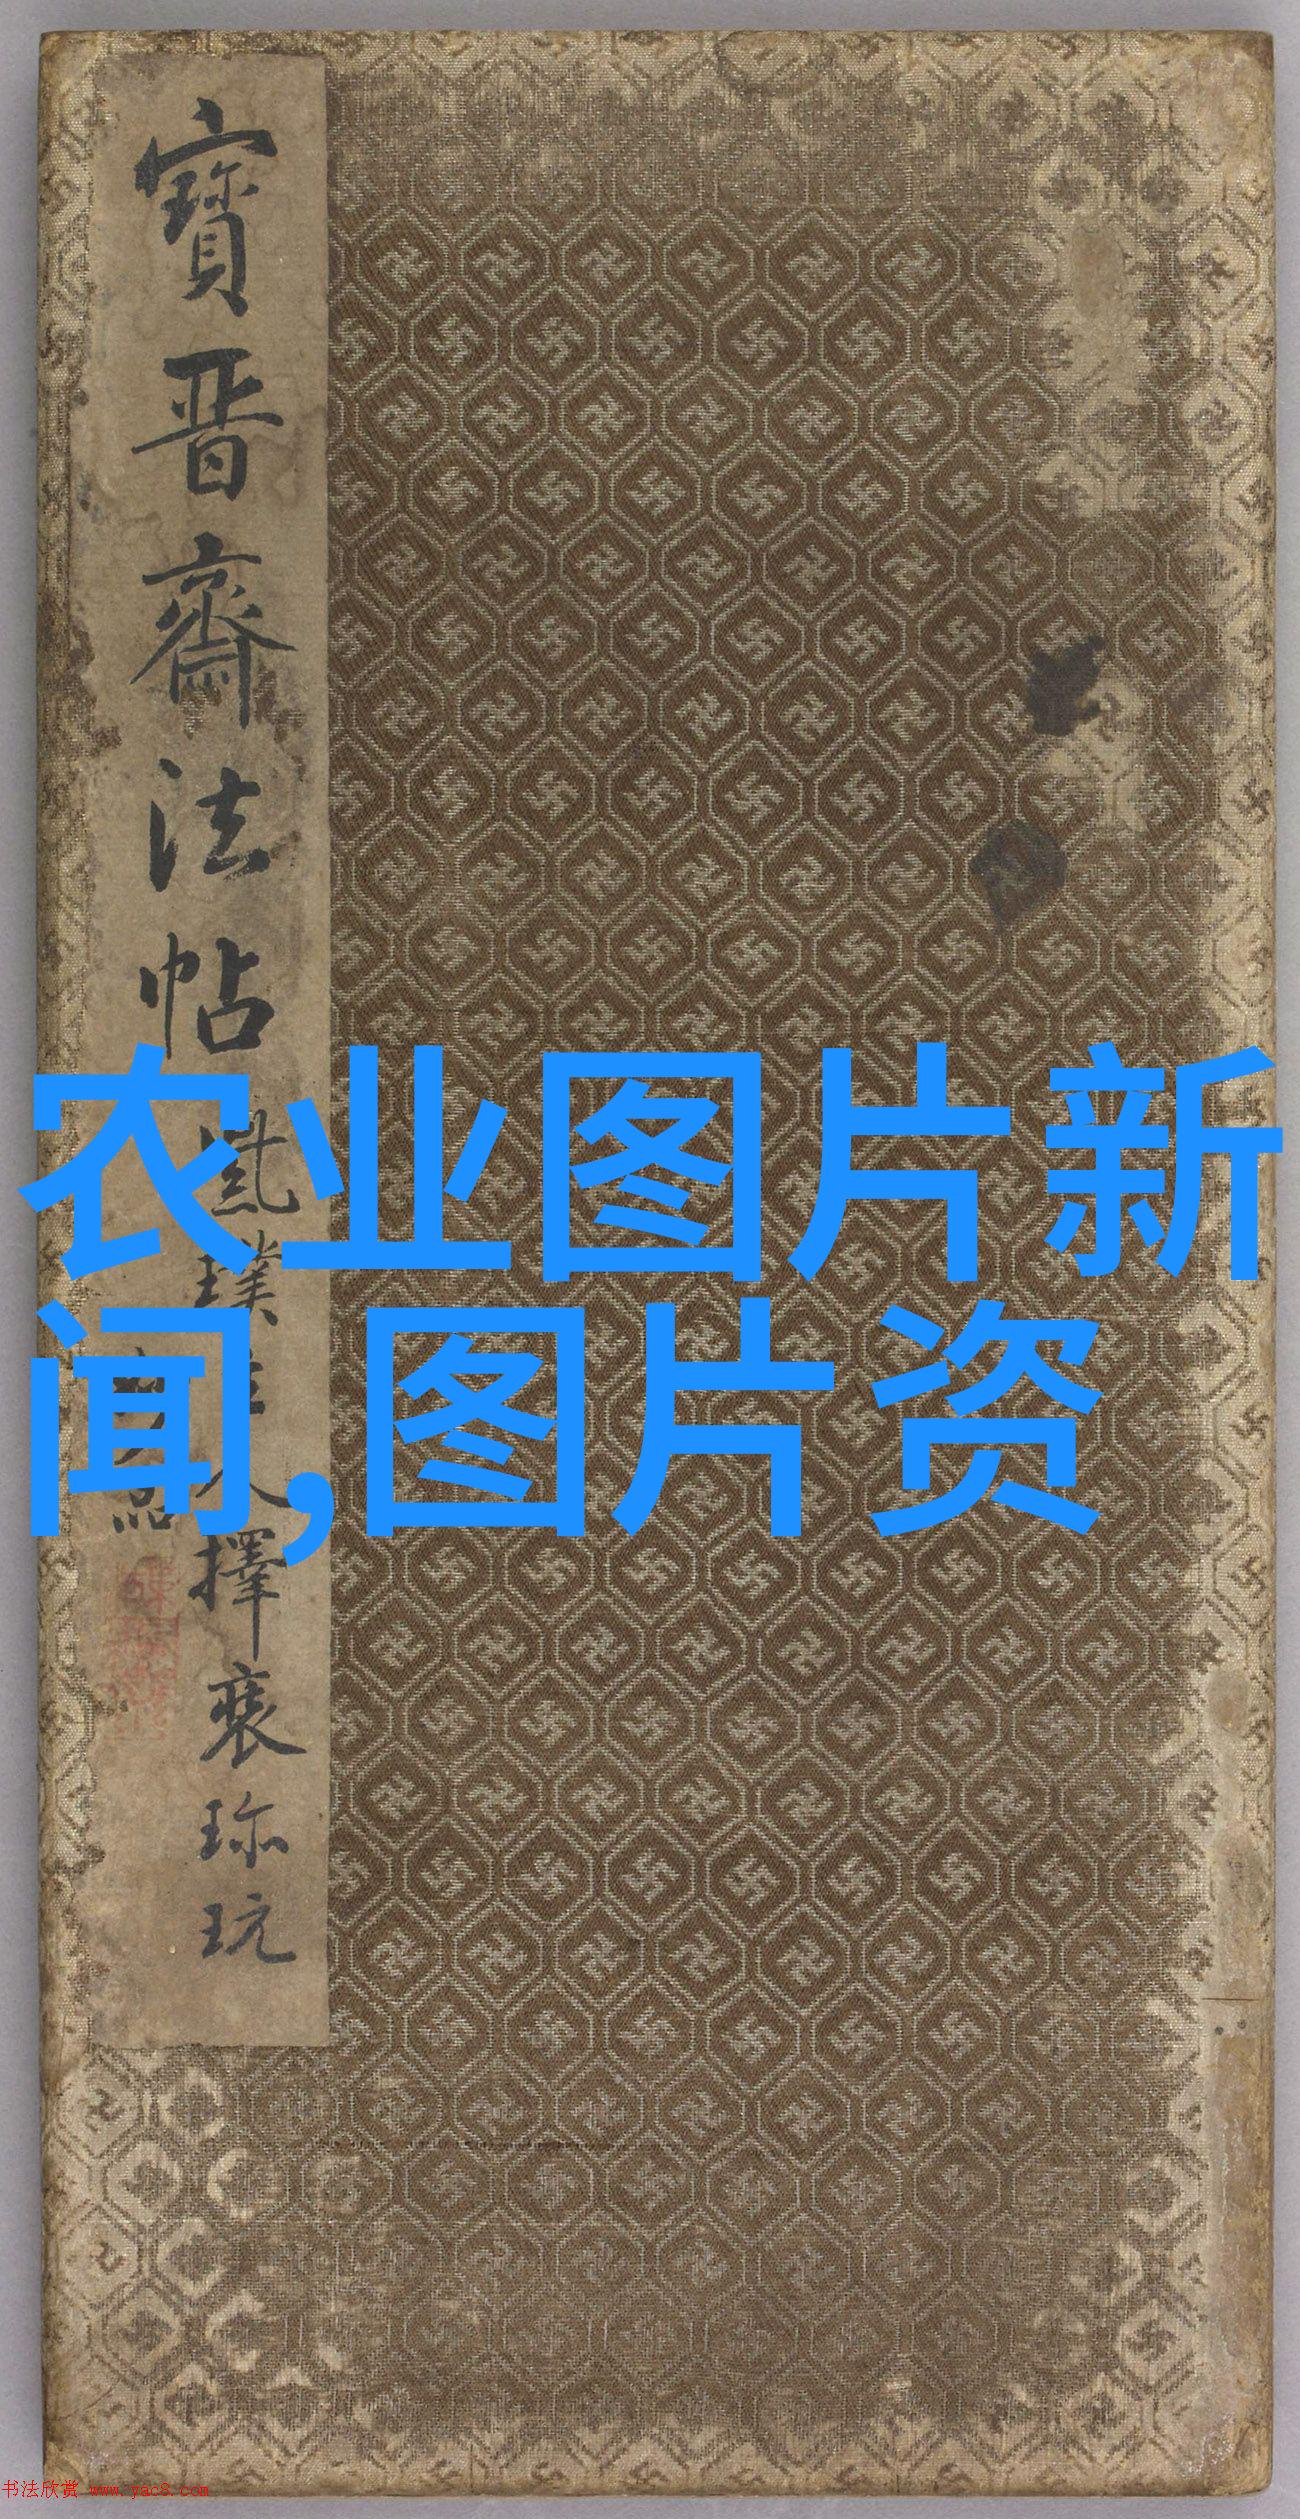 寳晋齋法帖
擇裘珎玩
农业图片新
闻,图片资
书法欣赏 www.yac8.com